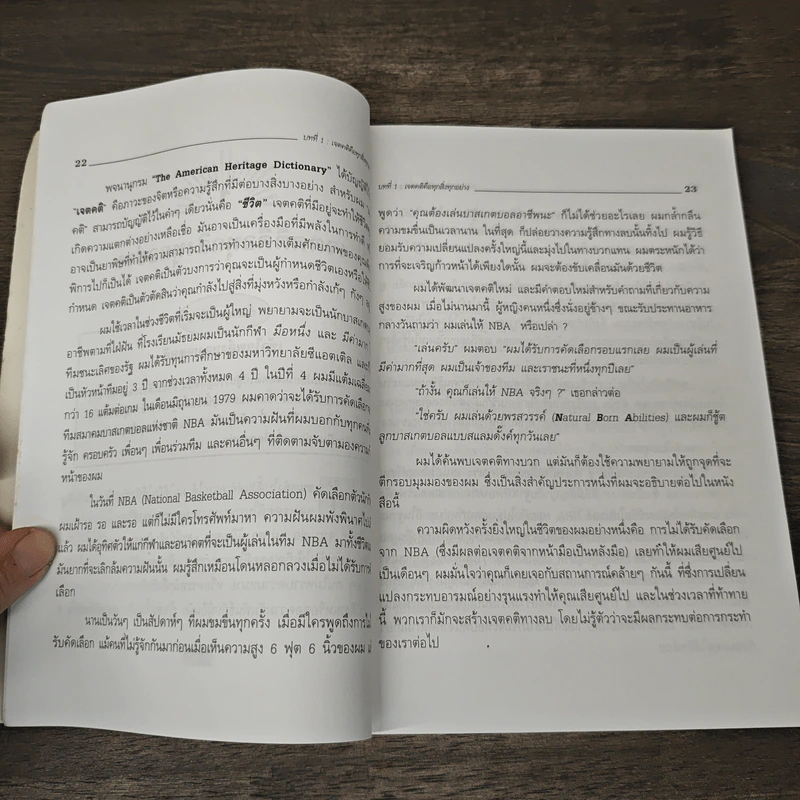 22
บทที่ 1 : เจตคติคือทุกสิ่งทุก
พจนานุกรม "The American Heritage Dictionary" ได้บัญญัติ
"เจตคติ" คือภาวะของจิตหรือความรู้สึกที่มีต่อบางสิ่งบางอย่าง สำหรับผม
คติ" สามารถบัญญัติไว้ในคำๆ เดียวนั่นคือ "ชีวิต" เจตคติที่มีอยู่จะทำให้ชีวิต
เกิดความแตกต่างอย่างเหลือเชื่อ มันอาจเป็นเครื่องมือที่มีพลังในการทำดี
อาจเป็นยาพิษที่ทำให้ความสามารถในการทำงานอย่างเต็มศักยภาพของคุณ
พิการไปก็เป็นได้ เจตคติเป็นตัวบงการว่าคุณจะเป็นผู้กำหนดชีวิตเองหรือ
กำหนด เจตคติเป็นตัวตัดสินว่าคุณกำลังไปสู่สิ่งที่มุ่งหวังหรือกำลังเก้ๆ กังๆ
ผมใช้เวลาในช่วงชีวิตที่เริ่มจะเป็นผู้ใหญ่ พยายามจะเป็นนักบาสเกต
อาชีพตามที่ใฝ่ฝัน ที่โรงเรียนมัธยมผมเป็นนักกีฬา มือหนึ่ง และ มีค่ามาก
ทีมชนะเลิศของรัฐ ผมได้รับทุนการศึกษาของมหาวิทยาลัยซีแอตเติล และ
เป็นหัวหน้าทีมอยู่ 3 ปี จากช่วงเวลาทั้งหมด 4 ปี ในปีที่ 4 ผมมีแต้มเฉลี่ย
กว่า 16 แต้มต่อเกม ในเดือนมิถุนายน 1979 ผมคาดว่าจะได้รับการคัดเลือก
ทีมสมาคมบาสเกตบอลแห่งชาติ NBA มันเป็นความฝันที่ผมบอกกับทุกคน
รู้จัก ครอบครัว เพื่อนๆ เพื่อนร่วมทีม และคนอื่นๆ ที่ติดตามจับตามองความ
หน้าของผม
ในวันที่ NBA (National Basketball Association) คัดเลือกตัวนัก
ผมเฝ้ารอ รอ และรอ แต่ก็ไม่มีใครโทรศัพท์มาหา ความฝันผมพังพินาศไป
แล้ว ผมได้อุทิศตัวให้แก่กีฬาและอนาคตที่จะเป็นผู้เล่นในทีม NBA มาทั้งชีวิต
มันยากที่จะเลิกล้มความฝันนั้น ผมรู้สึกเหมือนโดนหลอกลวงเมื่อไม่ได้รับการ
เลือก
นานเป็นวันๆ เป็นสัปดาห์ๆ ที่ผมขมขื่นทุกครั้ง เมื่อมีใครพูดถึงการไม่
รับคัดเลือก แม้คนที่ไม่รู้จักกันมาก่อนเมื่อเห็นความสูง 6 ฟุต 6 นิ้วของผม
บทที่ 1 : เจตคติคือทุกสิ่งทุกอย่าง
23
พูดว่า "คุณต้องเล่นบาสเกตบอลอาชีพนะ" ก็ไม่ได้ช่วยอะไรเลย ผมกล้ำกลืน
ความขมขื่นเป็นเวลานาน ในที่สุด ก็ปล่อยวางความรู้สึกทางลบนั้นทิ้งไป ผมรู้วิธี
ยอมรับความเปลี่ยนแปลงครั้งใหญ่นี้และมุ่งไปในทางบวกแทน ผมตระหนักได้ว่า
การที่จะเจริญก้าวหน้าได้เพียงใดนั้น ผมจะต้องขับเคลื่อนมันด้วยชีวิต
ผมได้พัฒนาเจตคติใหม่ และมีคำตอบใหม่สำหรับคำถามที่เกี่ยวกับความ
สูงของผม เมื่อไม่นานมานี้ ผู้หญิงคนหนึ่งซึ่งนั่งอยู่ข้างๆ ขณะรับประทานอาหาร
กลางวันถามว่า ผมเล่นให้ NBA หรือเปล่า ?
"เล่นครับ" ผมตอบ "ผมได้รับการคัดเลือกรอบแรกเลย ผมเป็นผู้เล่นที่
มีค่ามากที่สุด ผมเป็นเจ้าของทีม และเราชนะที่หนึ่งทุกปีเลย"
"ถ้างั้น คุณก็เล่นให้ NBA จริงๆ ?" เธอกล่าวต่อ
"ใช่ครับ ผมเล่นด้วยพรสวรรค์ (Natural Born Abilities) และผมก็ชู้ต
ลูกบาสเกตบอลแบบสแลมดั๊งค์ทุกวันเลย"
ผมได้ค้นพบเจตคติทางบวก แต่มันก็ต้องใช้ความพยายามให้ถูกจุดที่จะ
ตีกรอบมุมมองของผม ซึ่งเป็นสิ่งสำคัญประการหนึ่งที่ผมจะอธิบายต่อไปในหนัง
สือนี้
ความผิดหวังครั้งยิ่งใหญ่ในชีวิตของผมอย่างหนึ่งคือ การไม่ได้รับคัดเลือก
จาก NBA (ซึ่งมีผลต่อเจตคติจากหน้ามือเป็นหลังมือ) เลยทำให้ผมเสียศูนย์ไป
เป็นเดือนๆ ผมมั่นใจว่าคุณก็เคยเจอกับสถานการณ์คล้ายๆ กันนี้ ที่ซึ่งการเปลี่ยน
แปลงกระทบอารมณ์อย่างรุนแรงทำให้คุณเสียศูนย์ไป และในช่วงเวลาที่ท้าทาย
นี้ พวกเราก็มักจะสร้างเจตคติทางลบ โดยไม่รู้ตัวว่าจะมีผลกระทบต่อการกระทำ
ของเราต่อไป